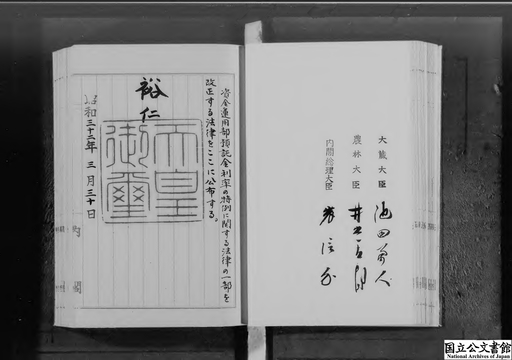 大蔵大臣 池田勇人
農林大臣 井出一太郎
内閣総理大臣 岸信介
資金運用部預託金利率の特例に関する法律の一部を
改正する法律をここに公布する。
裕仁
天皇御璽
昭和三十二年三月三十日
内閣
国立公文書館
National Archives of Japan